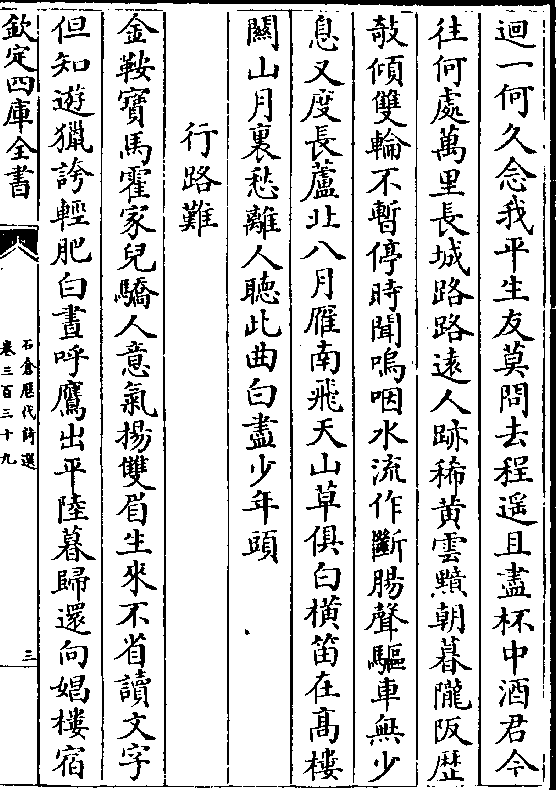 迴一何久念我平生友莫問去程遥且盡杯中酒君今
往何處萬里長城路路逺人跡稀黄雲黯朝暮隴阪歴
攲傾雙輪不暫停時聞嗚咽水流作斷腸聲驅車無少
息又度長蘆北八月雁南飛天山草俱白橫笛在髙樓
關山月裏愁離人聴此曲白盡少年頭
行路難
金鞍寳馬霍家兒驕人意氣揚雙眉生來不省讀文字
但知遊獵誇輕肥白晝呼鷹出平陸暮歸還向娼樓宿
欽定四庫全書
石倉歴代詩選
卷三百三十九
三